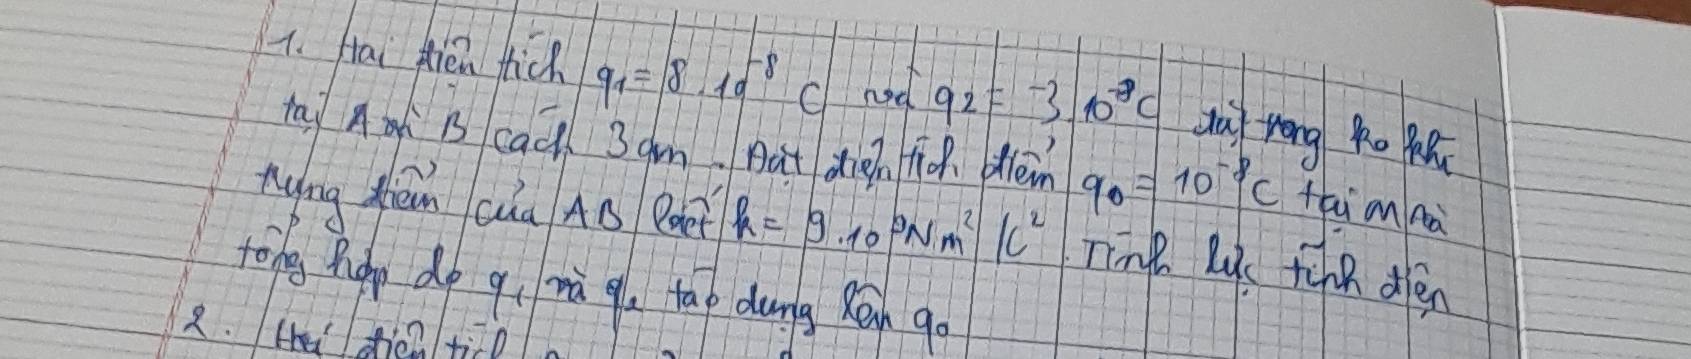 1. Hai điện tích q₁ = 8.10⁻⁸ C và q₂ = -3.10⁻⁸C đặt trong ko khí
tại A và B cách 3 cm. Đặt điện tích điểm q₀ = 10⁻⁸C tại M là
trung điểm của AB Biết k = 9.10⁹Nm²/C². Tính lực tĩnh điện
tổng hợp do q₁ và q₂ tác dụng lên q₀
2. Hai điện tích